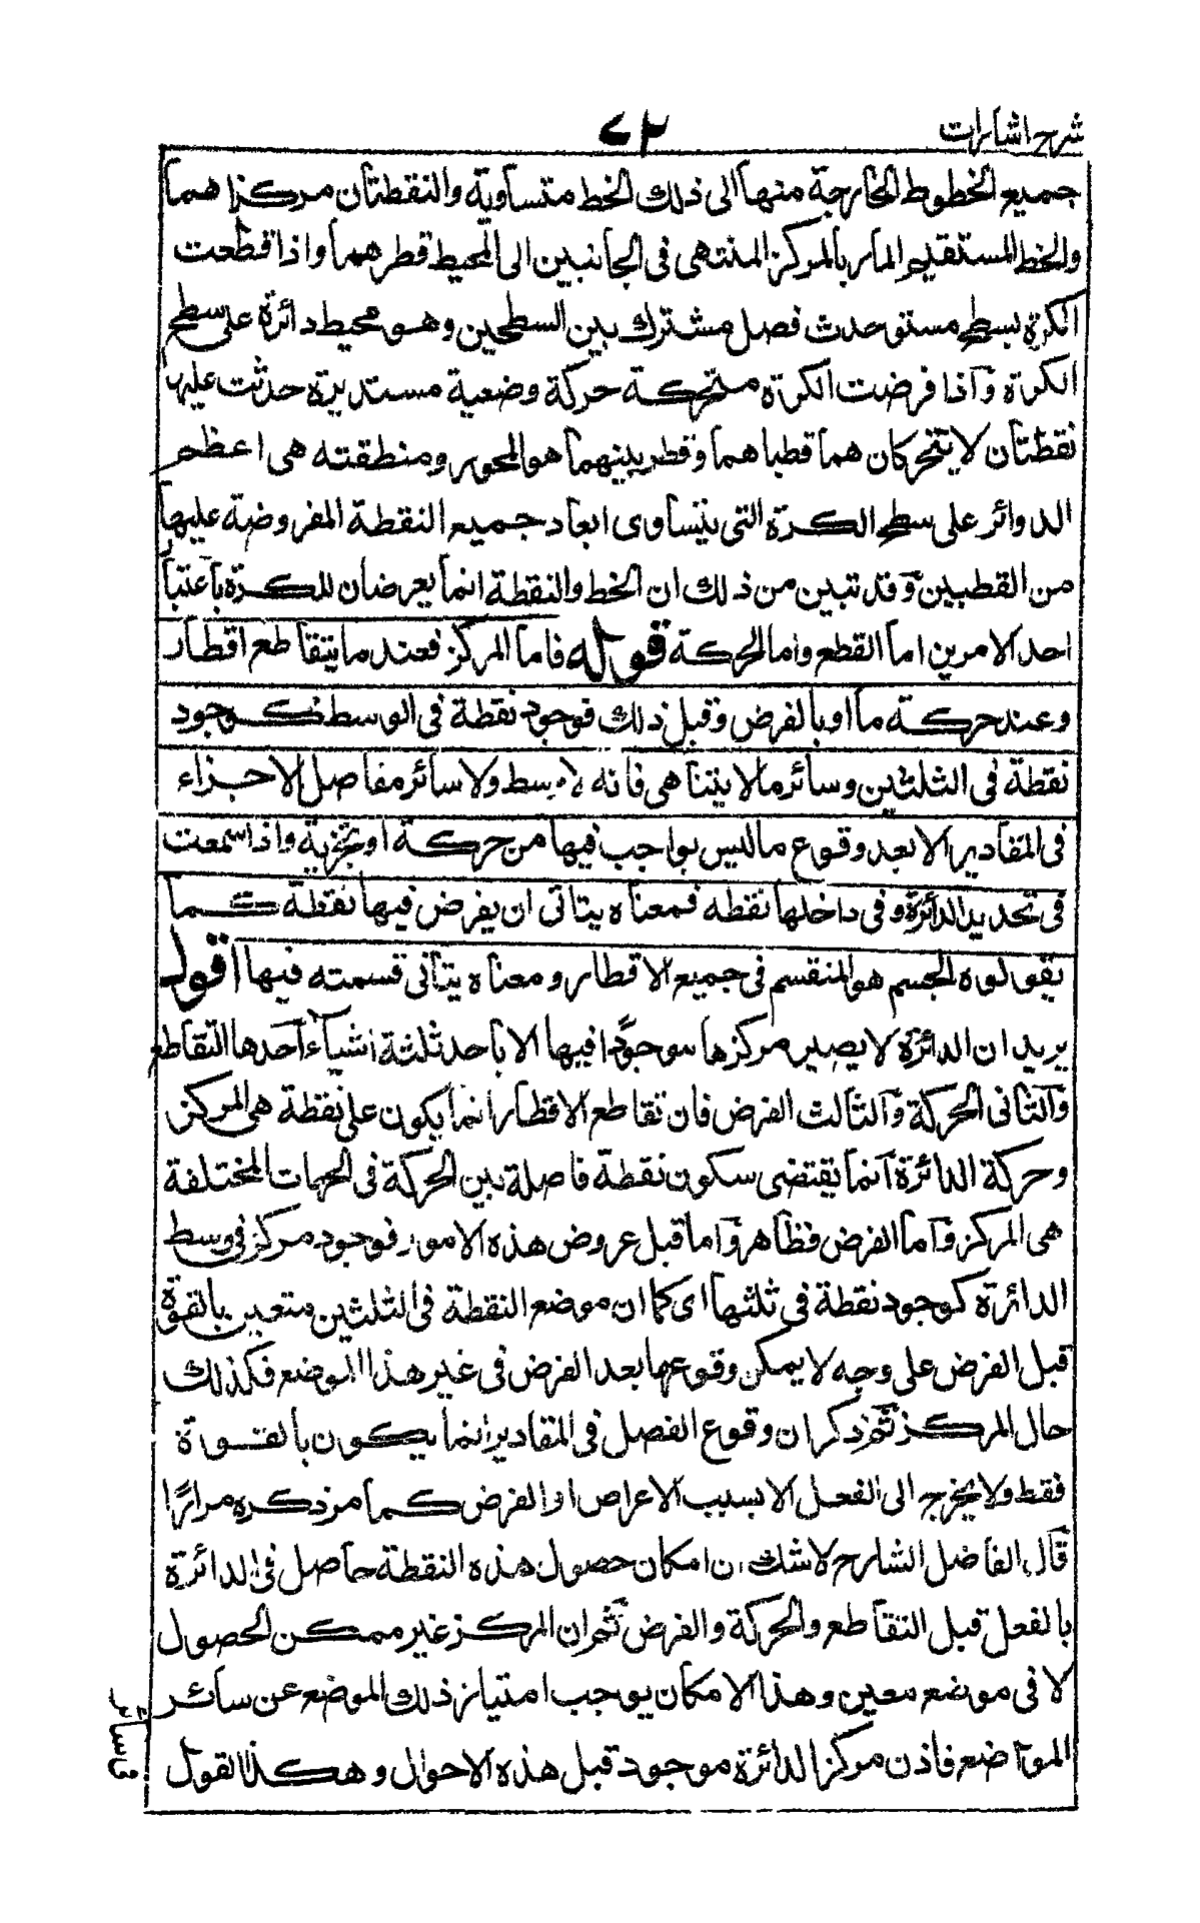 شرح اشارات
٧٢
جميع الخطوط الخارجة منها الى ذلك الخط متساوية والنقطتان مركزاهما
والخط المستقيم المار بالمركز المنتهى فى الجانبين الى المحيط قطرهما واذا قطعت
الكرة بسطح مستو حدث فصل مشترك بين السطحين وهو محيط دائرة على سطح
الكرة واذا فرضت الكرة متحركة حركة وضعية مستديرة حدثت عليها
نقطتان لا يتحركان هما قطباهما وقطر بينهما هو المحور ومنطقته هى اعظم
الدوائر على سطح الكرة التى يتساوى ابعاد جميع النقطة المفروضة عليها
من القطبين وقد تبين من ذلك ان الخط والنقطة انما يعرضان للكرة باعتبار
احد الامرين اما القطع واما الحركة قوله فاما المركز فعند ما يتقاطع اقطار
وعند حركة ما او بالفرض وقبل ذلك فوجود نقطة فى الوسط كوجود
نقطة فى الثلثين وسائر ما لا يتناهى فانه لا وسط ولا سائر مفاصل الاجزاء
فى المقادير الا بعد وقوع ما ليس بواجب فيها من حركة او تجزية واذا سمعت
فى تحديد الدائرة وفى داخلها نقطه فمعناه يتاتى ان يفرض فيها نقطة كما
يقولوه الجسم هو المنقسم فى جميع الاقطار ومعناه يتاتى قسمته فيها اقول
يريد ان الدائرة لا يصير مركزها موجودا فيها الا باحد ثلثة اشياء احدها التقاطع
والثانى الحركة والثالث الفرض فان تقاطع الاقطار انما يكون على نقطة هى المركز
وحركة الدائرة انما يقتضى سكون نقطة فاصلة بين الحركة فى الجهات المختلفة
هى المركز واما الفرض فظاهر واما قبل عروض هذه الامور فوجود مركز فى وسط
الدائرة كوجود نقطة فى ثلثها اى كما ان موضع النقطة فى الثلثين متعين بالقوة
قبل الفرض على وجه لا يمكن وقوعها بعد الفرض فى غير هذا الموضع فكذلك
حال المركز ثم ذكر ان وقوع الفصل فى المقادير انما يكون بالقوة
فقط ولا يخرج الى الفعل الا بسبب الاعراض او الفرض كما مر ذكره مرارًا
قال الفاضل الشارح لا شك ان امكان حصول هذه النقطة حاصل فى الدائرة
بالفعل قبل التقاطع والحركة والفرض ثم ان المركز غير ممكن الحصول
لا فى موضع معين وهذا الامكان يوجب امتياز ذلك الموضع عن سائر
المواضع فاذن مركز الدائرة موجود قبل هذه الاحوال وهكذا القول